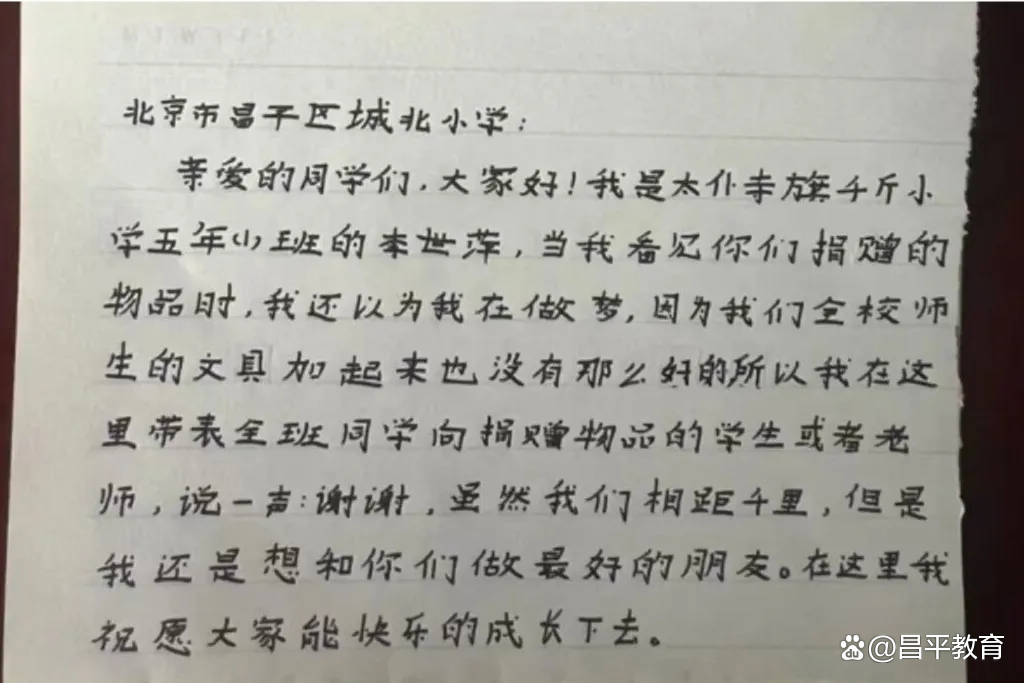 北京市昌平区城北小学:
亲爱的同学们,大家好!我是太仆寺旗千斤小
学五年(1)班的李世萍,当我看见你们捐赠的
物品时,我还以为我在做梦,因为我们全校师
生的文具加起来也没有那么好的所以我在这
里带表全班同学向捐赠物品的学生或者老
师,说一声:谢谢,虽然我们相距千里,但是
我还是想和你们做最好的朋友。在这里我
祝愿大家能快乐的成长下去。
@昌平教育